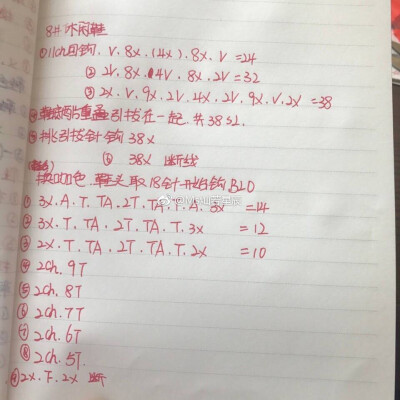 8# 休闲鞋
①11ch回钩. V. 8x. (4x). 8x. V =24
② 2V. 8x. 4V. 8x. 2V =32
③ 2x. V. 9x. 2V. 4x. 2V. 9x. V. 2x =38
引拔在一起. 共38sl.
⑤挑引拔针钩 38x
⑥ 38x 断线
换咖色. 鞋头取18针开始钩BLO
① 3x. A. T. TA. 2T. TA. T. A. 3x =14
② 3x. T. TA. 2T. TA. T. 3x =12
③ 2x. T. TA. 2T. TA. T. 2x =10
④ 2ch. 9T
⑤ 2ch. 8T
⑥ 2ch. 7T
⑦ 2ch. 6T
⑧ 2ch. 5T.
⑨ 2x. T. 2x 断